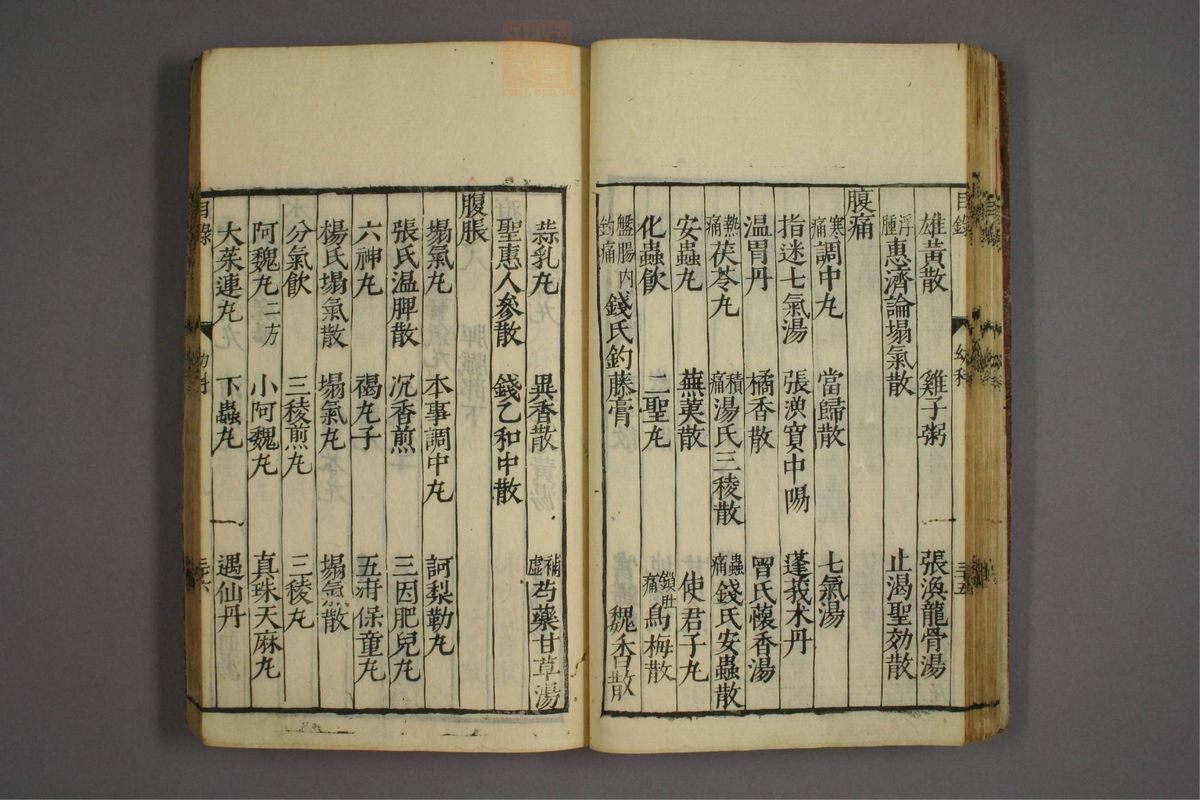 目錄 幼科 三五
雄黃散 雞子粥 張渙龍骨湯
浮腫 惠濟論塌氣散 止渴聖効散
腹痛
寒痛 調中丸 當歸散 七氣湯
指迷七氣湯 張渙寶中湯 蓬莪朮丹
温胃丹 橘香散 曾氏蘹香湯
熱痛 茯苓丸 積痛 湯氏三稜散 蟲痛 錢氏安蟲散
安蟲丸 蕪荑散 使君子丸
化蟲飲 二聖丸 鎖肚痛 烏梅散
盤腸內釣痛 錢氏釣藤膏 魏香散
蒜乳丸 異香散 補虛 芍藥甘草湯
聖惠人參散 錢乙和中散
腹脹
塌氣丸 本事調中丸 訶梨勒丸
張氏温脾散 沉香煎 三因肥兒丸
六神丸 褐丸子 五府保童丸
楊氏塌氣散 塌氣丸 塌氣散
分氣飲 三稜煎丸 三稜丸
阿魏丸二方 小阿魏丸 真珠天麻丸
大茱連丸 下蟲丸 遇仙丹
目錄 幼科 三六